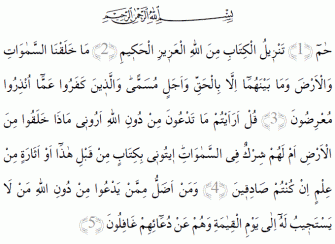 بِسْمِ اللهِ الرَّحْمٰنِ الرَّحِيمِ
حٰمٓ ﴿1﴾ تَنْزِيلُ الْكِتَابِ مِنَ اللهِ الْعَزِيزِ الْحَكِيمِ ﴿2﴾ مَا خَلَقْنَا السَّمٰوَاتِ
وَالْاَرْضَ وَمَا بَيْنَهُمَٓا اِلَّا بِالْحَقِّ وَاَجَلٍ مُسَمًّىۜ وَالَّذِينَ كَفَرُوا عَمَّٓا اُنْذِرُوا
مُعْرِضُونَ ﴿3﴾ قُلْ اَرَاَيْتُمْ مَا تَدْعُونَ مِنْ دُونِ اللهِ اَرُونِي مَاذَا خَلَقُوا مِنَ
الْاَرْضِ اَمْ لَهُمْ شِرْكٌ فِي السَّمٰوَاتِۜ اِيتُونِي بِكِتَابٍ مِنْ قَبْلِ هٰذَٓا اَوْ اَثَارَةٍ مِنْ
عِلْمٍ اِنْ كُنْتُمْ صَادِقِينَ ﴿4﴾ وَمَنْ اَضَلُّ مِمَّنْ يَدْعُوا مِنْ دُونِ اللهِ مَنْ لَا
يَسْتَجِيبُ لَهُٓ اِلٰى يَوْمِ الْقِيٰمَةِ وَهُمْ عَنْ دُعَٓائِهِمْ غَافِلُونَ ﴿5﴾